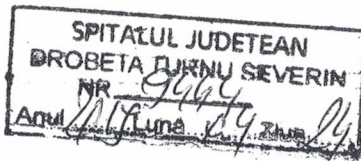 SPITALUL JUDETEAN
DROBETA TURNU SEVERIN
NR 9444
Anul Luna 04 Ziua 04